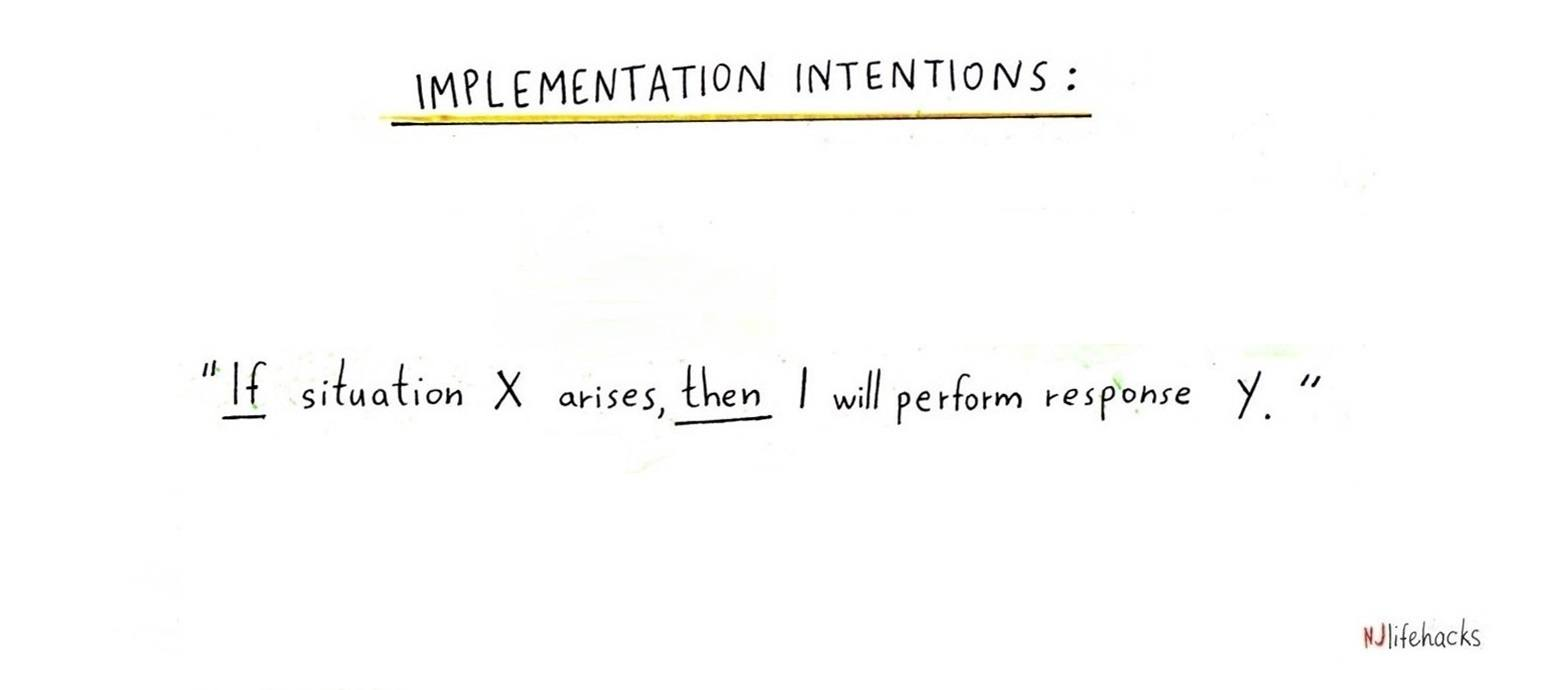 IMPLEMENTATION INTENTIONS:
"If situation X arises, then I will perform response Y."
NJlifehacks